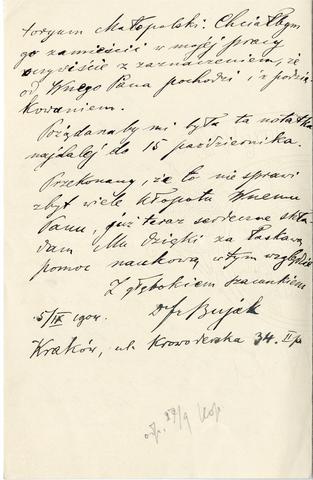 toryum Małopolski. Chciałbym
go zamieścić w mojej pracy
oczywiście z zaznaczeniem, że
od Wnego Pana pochodzi, i z podzię-
kowaniem.
Pożądana by mi była ta notatka
najdalej do 15 października.
Przekonany, że to nie sprawi
zbyt wiele kłopotu Wnemu
Panu, już teraz serdeczne skła-
dam Mu dzięki za łaskawą
pomoc naukową w tym względzie
Z głębokiem szacunkiem
5/IX 1904. Dr Fr Bujak
Kraków, ul. Krowoderska 34. II p
odp. 29/9